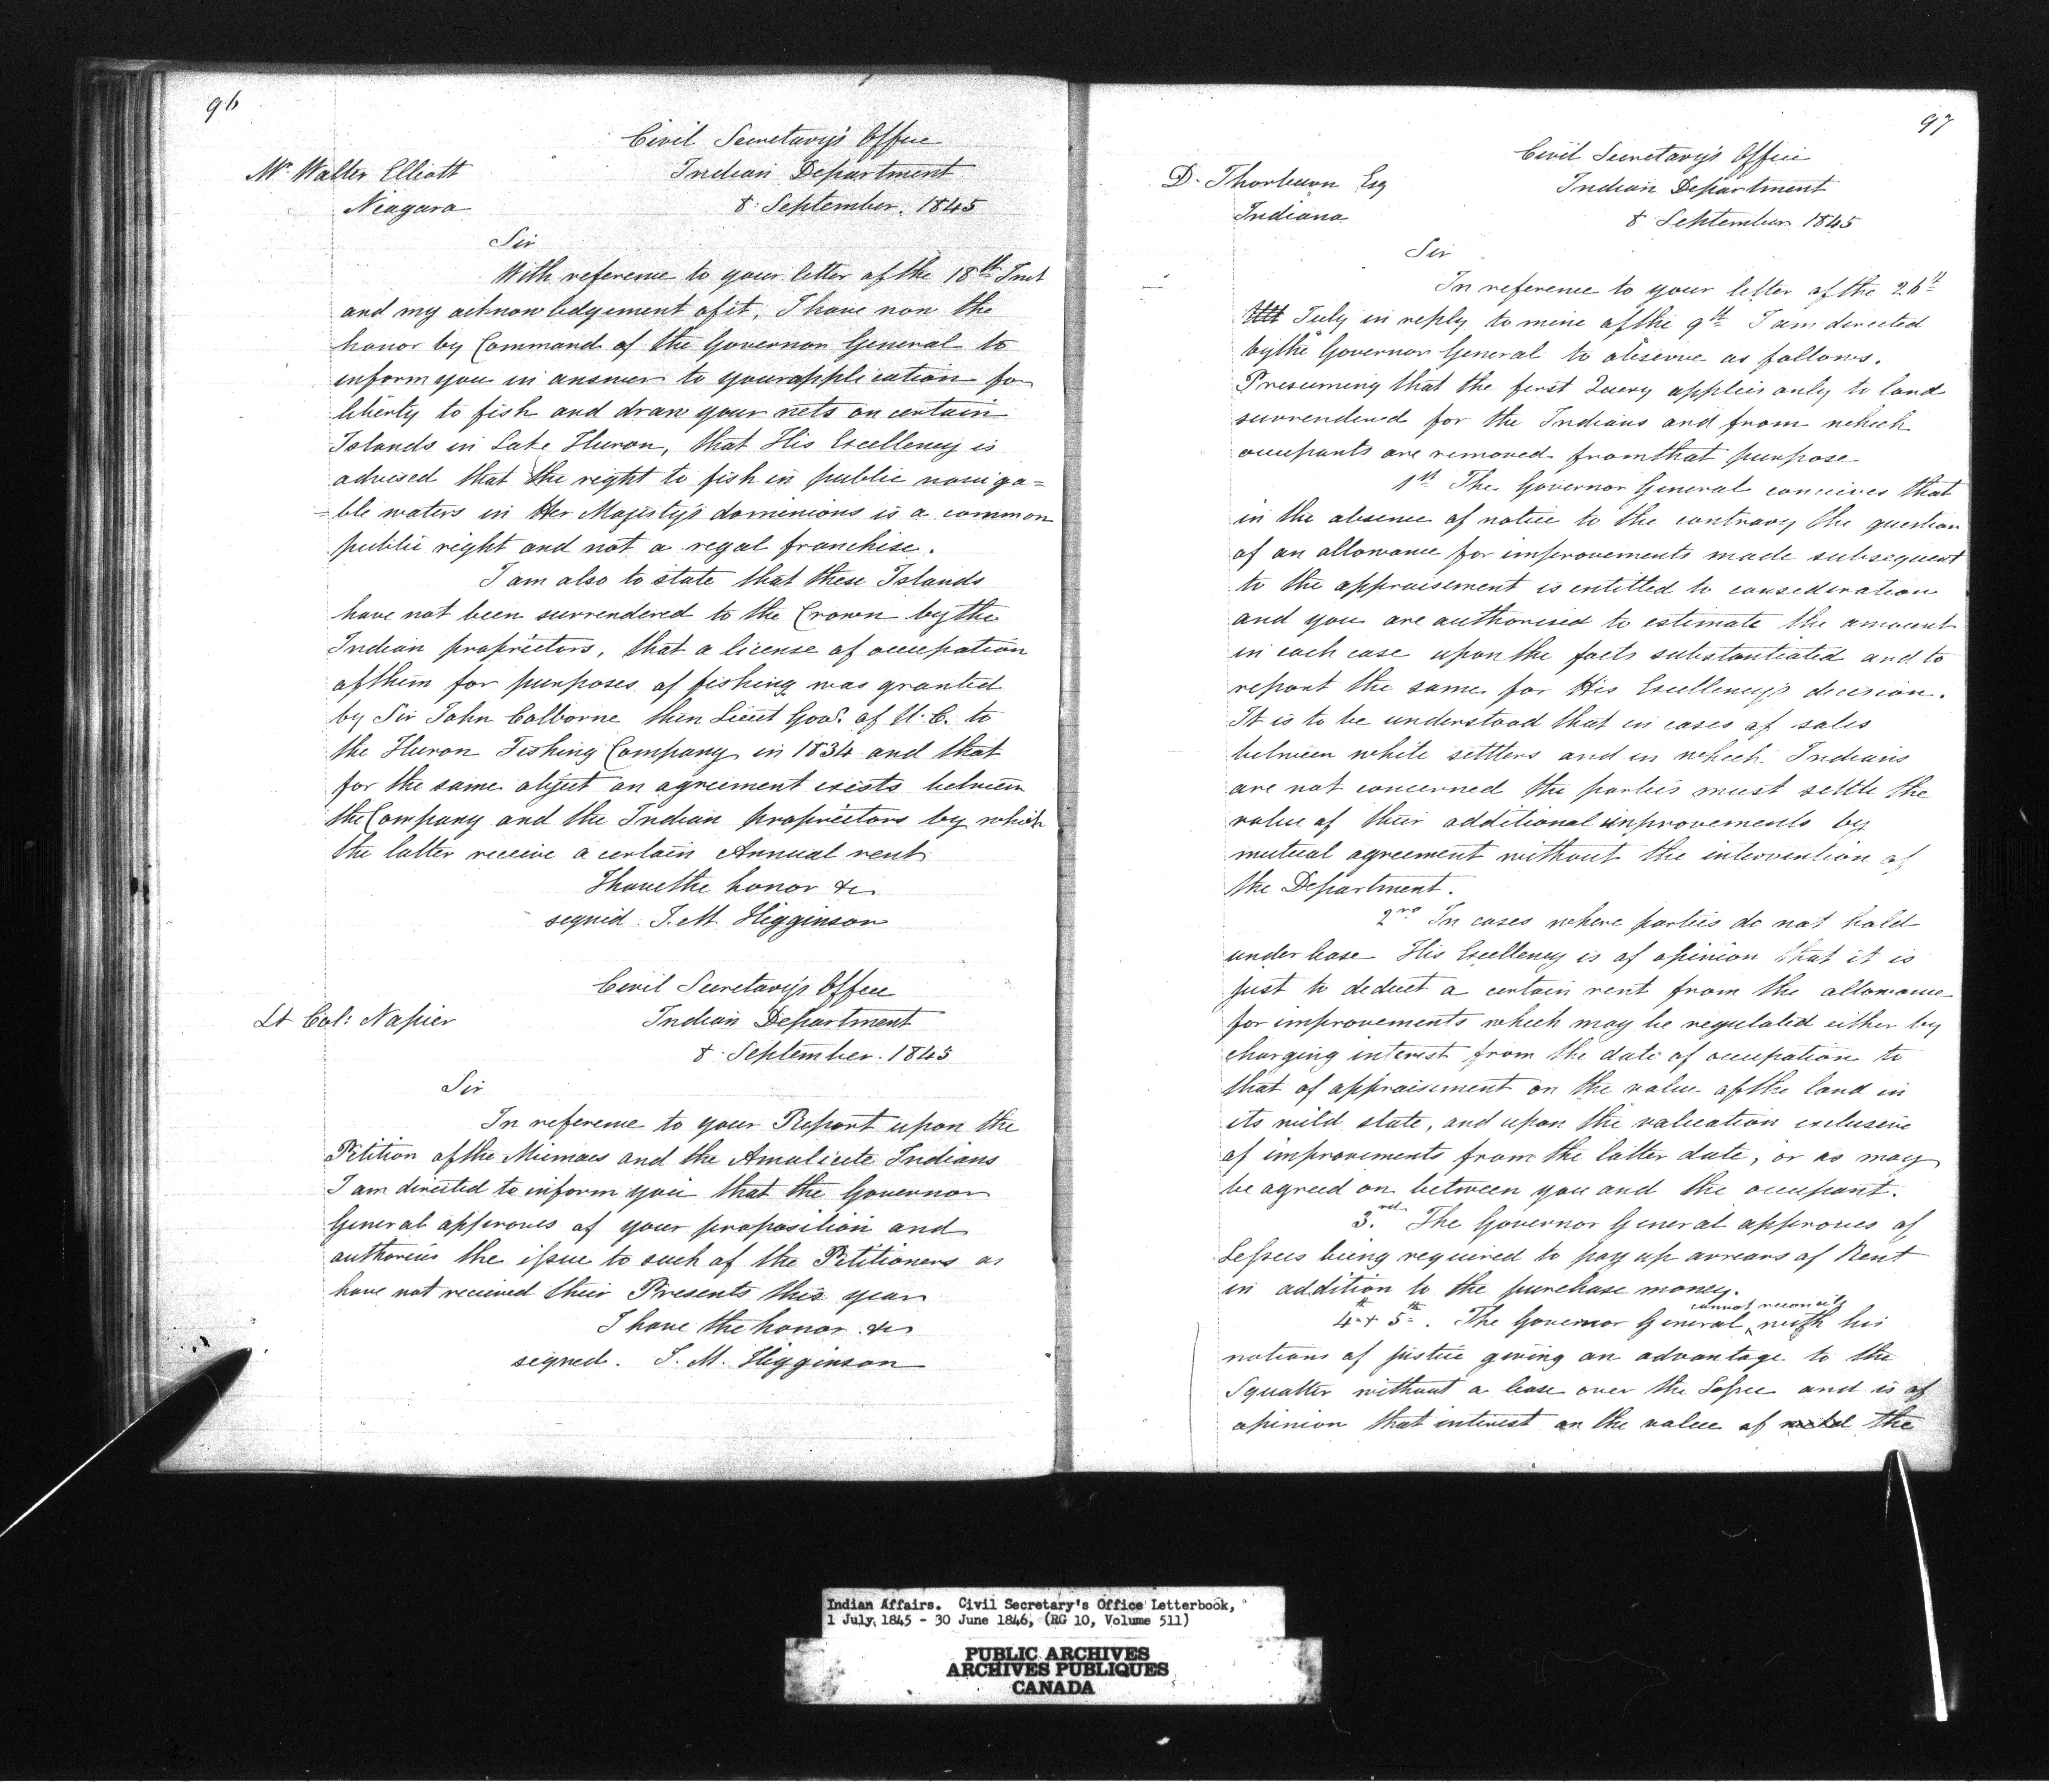 96
Civil Secretary's Office
Mr. Walter Elliott Indian Department
Niagara 8 September. 1845
Sir
With reference to your letter of the 18th Inst
and my acknowledgement of it, I have now the
honor by Command of the Governor General to
inform you in answer to your application for
liberty to fish and draw your nets on certain
Islands in Lake Huron, that His Excellency is
advised that the right to fish in public naviga=
=ble waters in Her Majesty's dominions is a common
public right and not a regal franchise.
I am also to state that these Islands
have not been surrendered to the Crown by the
Indian proprietors, that a license of occupation
of them for purposes of fishing was granted
by Sir John Colborne then Lieut Govr. of U. C. to
the Huron Fishing Company in 1834 and that
for the same object an agreement exists between
the Company and the Indian proprietors by which
the latter receive a certain Annual rent
I have the honor &c
signed. J. M. Higginson
Civil Secretary's Office
Lt Col: Napier Indian Department
8 September. 1845
Sir
In reference to your Report upon the
Petition of the Micmacs and the Amalicite Indians
I am directed to inform you that the Governor
General approves of your proposition and
authorises the issue to such of the Petitioners as
have not received their Presents this year
I have the honor &c
signed. J. M. Higginson
97
Civil Secretary's Office
D. Thorburn Esq Indian Department
Indiana 8 September 1845
Sir
In reference to your letter of the 26th
Ult July in reply to mine of the 9th I am directed
by the Governor General to observe as follows.
Presuming that the first Query applies only to land
surrendered for the Indians and from which
occupants are removed from that purpose
1st The Governor General conceives that
in the absence of notice to the contrary the question
of an allowance for improvements made subsequent
to the appraisement is entitled to consideration
and you are authorised to estimate the amount
in each case upon the facts substantiated and to
report the same for His Excellency's decision.
It is to be understood that in cases of sales
between white settlers and in which Indians
are not concerned the parties must settle the
value of their additional improvements by
mutual agreement without the intervention of
the Department.
2nd In cases where parties do not hold
under lease His Excellency is of opinion that it is
just to deduct a certain rent from the allowance
for improvements which may be regulated either by
charging interest from the date of occupation to
that of appraisement on the value of the land in
its wild state, and upon the valuation exclusive
of improvements from the latter date, or as may
be agreed on between you and the occupant.
3.rd The Governor General approves of
Lessees being required to pay up arrears of Rent
in addition to the purchase money.
4th + 5th. The Governor General cannot reconcile with his
notions of justice giving an advantage to the
Squatter without a lease over the Lessee and is of
opinion that interest on the value of wild the
Indian Affairs. Civil Secretary's Office Letterbook,
1 July, 1845 - 30 June 1846, (RG 10, Volume 511)
PUBLIC ARCHIVES
ARCHIVES PUBLIQUES
CANADA